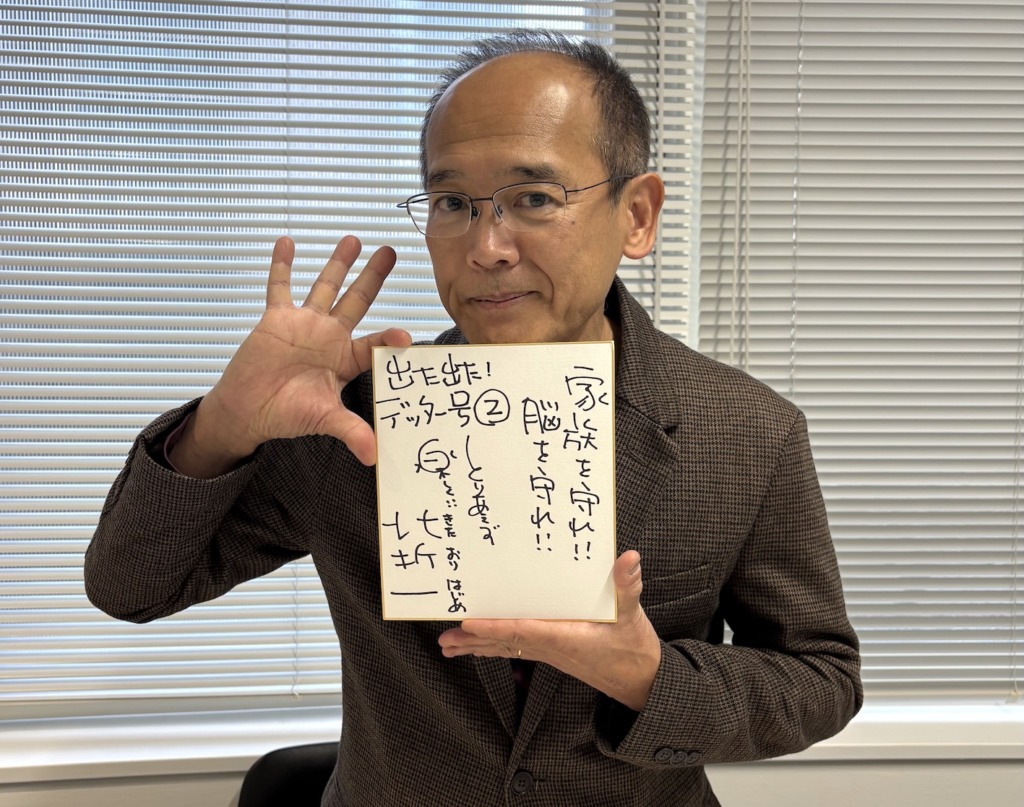 家族を守れ!!
脳を守れ!!
出た出た!
デッター号②
とりあえず
きた おり はじめ
北折一